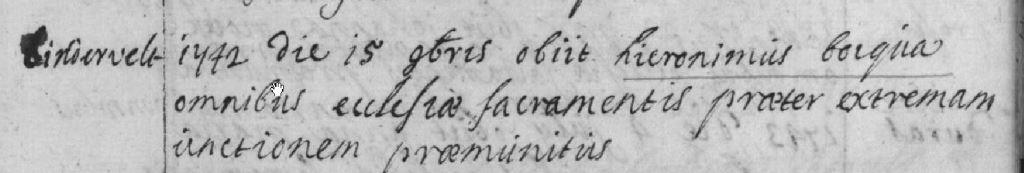 Lindervelt 1742 die 15 9bris obiit hieronimus bocqua
omnibus ecclesiæ sacramentis præter extremam
unctionem præmunitus